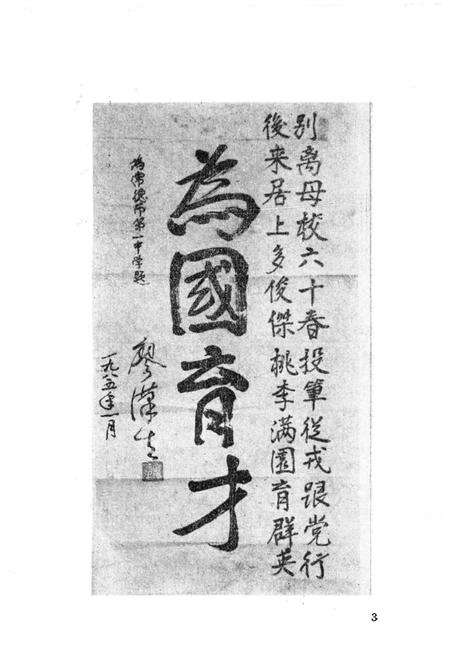 别离母校六十春投筆從戎跟党行
後来居上多俊傑桃李满園育群英
為國育才
為常德市第一中学題
廖漢生
一九八五年一月
3